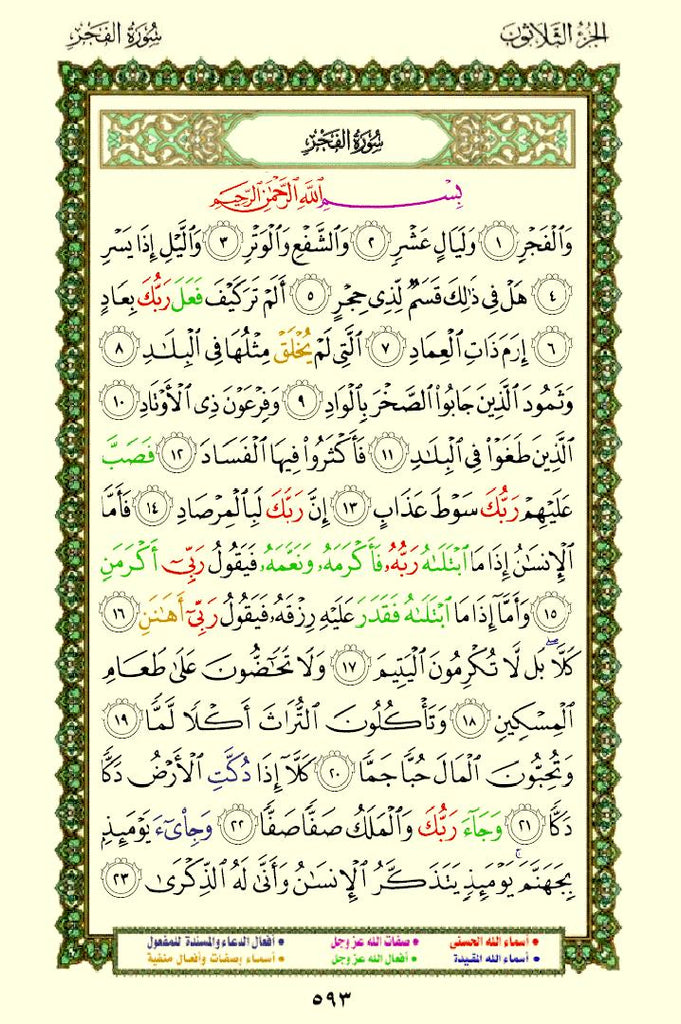 الجزء الثلاثون
سورة الفجر
سورة الفجر
بِسْمِ ٱللَّهِ ٱلرَّحْمَٰنِ ٱلرَّحِيمِ
وَٱلْفَجْرِ ١ وَلَيَالٍ عَشْرٍ ٢ وَٱلشَّفْعِ وَٱلْوَتْرِ ٣ وَٱلَّيْلِ إِذَا يَسْرِ
٤ هَلْ فِى ذَٰلِكَ قَسَمٌ لِّذِى حِجْرٍ ٥ أَلَمْ تَرَ كَيْفَ فَعَلَ رَبُّكَ بِعَادٍ
٦ إِرَمَ ذَاتِ ٱلْعِمَادِ ٧ ٱلَّتِى لَمْ يُخْلَقْ مِثْلُهَا فِى ٱلْبِلَٰدِ ٨
وَثَمُودَ ٱلَّذِينَ جَابُوا۟ ٱلصَّخْرَ بِٱلْوَادِ ٩ وَفِرْعَوْنَ ذِى ٱلْأَوْتَادِ ١٠
ٱلَّذِينَ طَغَوْا۟ فِى ٱلْبِلَٰدِ ١١ فَأَكْثَرُوا۟ فِيهَا ٱلْفَسَادَ ١٢ فَصَبَّ
عَلَيْهِمْ رَبُّكَ سَوْطَ عَذَابٍ ١٣ إِنَّ رَبَّكَ لَبِٱلْمِرْصَادِ ١٤ فَأَمَّا
ٱلْإِنسَٰنُ إِذَا مَا ٱبْتَلَىٰهُ رَبُّهُۥ فَأَكْرَمَهُۥ وَنَعَّمَهُۥ فَيَقُولُ رَبِّىٓ أَكْرَمَنِ
١٥ وَأَمَّآ إِذَا مَا ٱبْتَلَىٰهُ فَقَدَرَ عَلَيْهِ رِزْقَهُۥ فَيَقُولُ رَبِّىٓ أَهَٰنَنِ ١٦
كَلَّا ۖ بَل لَّا تُكْرِمُونَ ٱلْيَتِيمَ ١٧ وَلَا تَحَٰٓضُّونَ عَلَىٰ طَعَامِ
ٱلْمِسْكِينِ ١٨ وَتَأْكُلُونَ ٱلتُّرَاثَ أَكْلًا لَّمًّا ١٩
وَتُحِبُّونَ ٱلْمَالَ حُبًّا جَمًّا ٢٠ كَلَّآ إِذَا دُكَّتِ ٱلْأَرْضُ دَكًّا
دَكًّا ٢١ وَجَآءَ رَبُّكَ وَٱلْمَلَكُ صَفًّا صَفًّا ٢٢ وَجِا۟ىٓءَ يَوْمَئِذٍۭ
بِجَهَنَّمَ ۚ يَوْمَئِذٍ يَتَذَكَّرُ ٱلْإِنسَٰنُ وَأَنَّىٰ لَهُ ٱلذِّكْرَىٰ ٢٣
• أسماء الله الحسنى • صفات الله عز وجل • أفعال الدعاء والمسندة للمفعول
• أسماء الله المقيدة • أفعال الله عز وجل • أسماء وصفات وأفعال منفية
٥٩٣